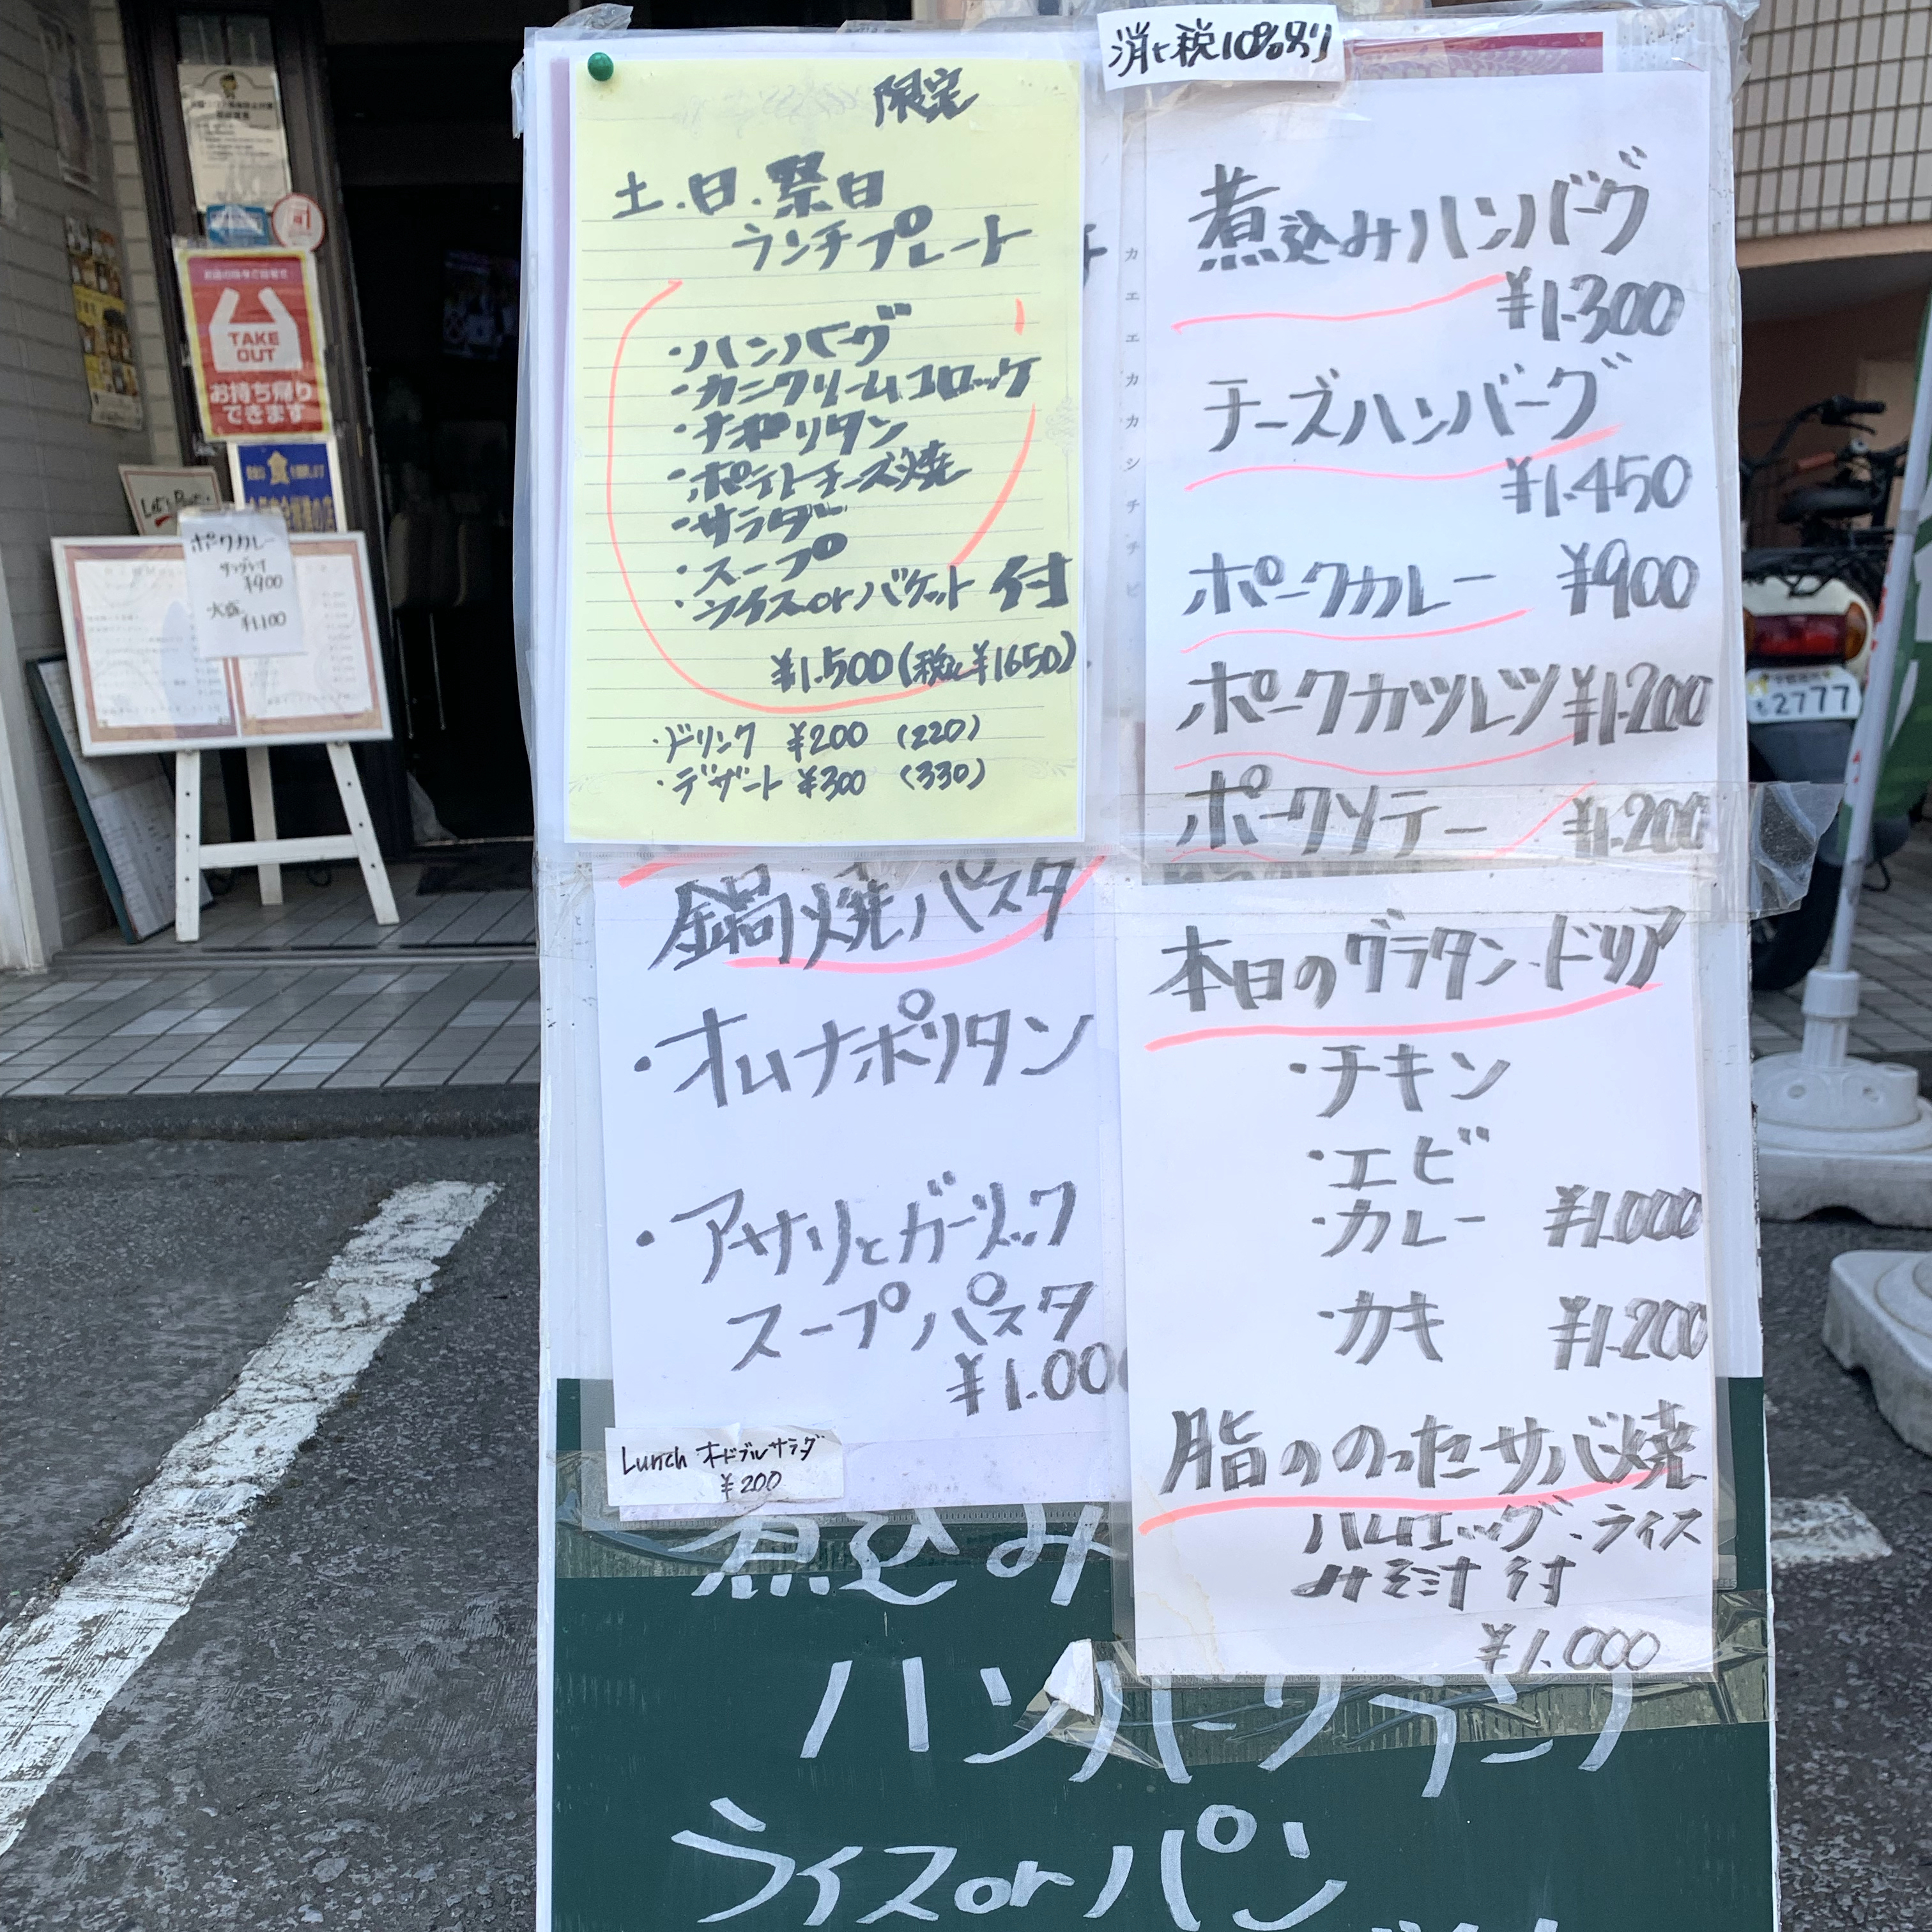 消費税10%別り
限定
土.日.祭日
ランチプレート
・ハンバーグ
・カニクリームコロッケ
・ナポリタン
・ポテトチーズ焼
・サラダー
・スープ
・ライスorバケット 付
¥1.500(税込¥1650)
・ドリンク ¥200 (220)
・デザート ¥300 (330)
煮込みハンバーグ
¥1.300
チーズハンバーグ
¥1.450
ポークカレー ¥900
ポークカツレツ ¥1.200
ポークソテー ¥1.200
鍋焼パスタ
・オムナポリタン
・アサリとガーリック
スープパスタ
¥1.00
Lunch オードブルサラダ
¥200
本日のグラタン・ドリア
・チキン
・エビ
・カレー ¥1.000
・カキ ¥1.200
脂ののったサバ焼
ハムエッグ・ライス
みそ汁 付
¥1.000
煮込み
ハンバーグランチ
ライスorパン
TAKE
OUT
お持ち帰り
できます
ポークカレー
¥900
大盛
¥1.100
2777